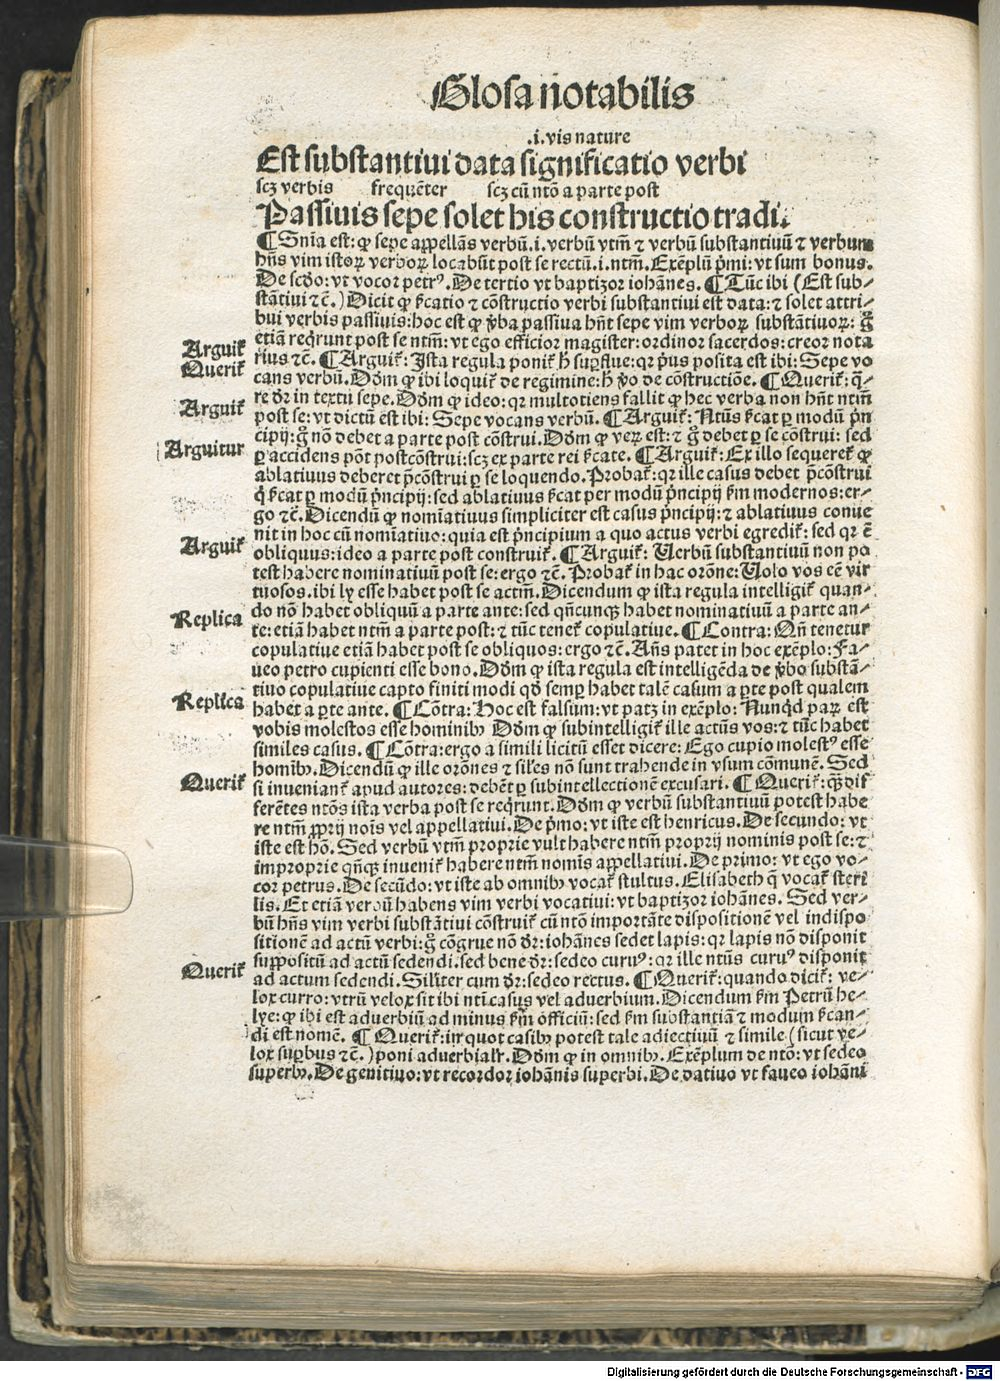 Glosa notabilis
.i. vis nature
Est substantiui data significatio verbi
scꝫ verbis frequẽter scꝫ cũ ntõ a parte post
Passiuis sepe solet his constructio tradi.
¶ Snĩa est: ꝙ sepe appellãs verbũ .i. verbũ vtm̃ ⁊ verbũ substantiuũ ⁊ verbum
hñs vim istoꝝ verboꝝ locabũt post se rectũ .i. ntm̃. Exẽplũ p̃mi: vt sum bonus.
De scd̃o: vt vocor petrꝰ. De tertio vt baptizor iohãnes. ¶ Tũc ibi (Est sub⸗
stãtiui ⁊c̃.) Dicit ꝙ s̃catio ⁊ cõstructio verbi substantiui est data: ⁊ solet attri⸗
bui verbis passiuis: hoc est ꝙ v̾ba passiua hñt sepe vim verboꝝ substãtiuoꝝ: g̊
etiã reqrũt post se ntm̃: vt ego efficior magister: ordinor sacerdos: creor nota
Arguit̃
rius ⁊c̃. ¶ Arguit̃: Ista regula ponit̃ h̃ suꝑflue: qꝛ pͥus posita est ibi: Sepe vo
Querit̃
cans verbũ. Dõm ꝙ ibi loquit̃ de regimine: h̃ v̾o de cõstructiõe. ¶ Querit̃: q̃⸗
re dr̃ in textu sepe. Dõm ꝙ ideo: qꝛ multotiens fallit ꝙ hec verba non hñt ntm̃
Arguit̃
post se: vt dictũ est ibi: Sepe vocans verbũ. ¶ Arguit̃: Ntũs s̃cat ꝑ modũ p̃n
cipij: g̊ nõ debet a parte post cõstrui. Dõm ꝙ veꝝ est: ⁊ g̊ debet ꝑ se cõstrui: sed
Arguitur
ꝑ accidens põt postcõstrui: scꝫ ex parte rei s̃cate. ¶ Arguit̃: Ex illo sequeret̃ ꝙ
ablatiuus deberet p̃cõstrui ꝑ se loquendo. Probat̃: qꝛ ille casus debet p̃cõstrui
q̇ s̃cat ꝑ modũ p̃ncipij: sed ablatiuus s̃cat per modũ p̃ncipij s̃m modernos: er⸗
go ⁊c̃. Dicendũ ꝙ nomĩatiuus simpliciter est casus p̃ncipij: ⁊ ablatiuus conue
nit in hoc cũ nomĩatiuo: quia est p̃ncipium a quo actus verbi egredit̃: sed qꝛ ẽ
Arguit̃
obliquus: ideo a parte post construit̃. ¶ Arguit̃: Verbũ substantiuũ non po
test habere nominatiuũ post se: ergo ⁊c̃. Probat̃ in hac orõne: Uolo vos eẽ vir
tuosos. ibi ly esse habet post se actm̃. Dicendum ꝙ ista regula intelligit̃ quan⸗
do nõ habet obliquũ a parte ante: sed qñcunqꝫ habet nominatiuũ a parte an⸗
Replica
te: etiã habet ntm̃ a parte post: ⁊ tũc tenet̃ copulatiue. ¶ Contra: Qñ tenetur
copulatiue etiã habet post se obliquos: ergo ⁊c̃. Añs patet in hoc exẽplo: Fa⸗
ueo petro cupienti esse bono. Dõm ꝙ ista regula est intelligẽda de v̾bo substã⸗
tiuo copulatiue capto finiti modi qd̃ semꝑ habet talẽ casum a ꝑte post qualem
Replica
habet a ꝑte ante. ¶ Cõtra: Hoc est falsum: vt patꝫ in exẽplo: Nunqd̃ paꝝ est
vobis molestos esse hominibꝰ Dõm ꝙ subintelligit̃ ille actũs vos: ⁊ tũc habet
similes casus. ¶ Cõtra: ergo a simili licitũ esset dicere: Ego cupio molestꝰ esse
homĩbꝰ. Dicendũ ꝙ ille orõnes ⁊ siles nõ sunt trahende in vsum cõmunẽ. Sed
Querit̃
si inueniant̃ apud autores: debẽt ꝑ subintellectionẽ excusari. ¶ Querit̃: qꝫ dif
ferẽtes ntõs ista verba post se reqrunt. Dõm ꝙ verbũ substantiuũ potest habe
re ntm̃ ꝓprij nois vel appellatiui. De p̃mo: vt iste est henricus. De secundo: vt
iste est hõ. Sed verbũ vtm̃ proprie vult habere ntm̃ proprij nominis post se: ⁊
improprie qñqꝫ inuenit̃ habere ntm̃ nomĩs appellatiui. De primo: vt ego vo⸗
cor petrus. De secũdo: vt iste ab omnibꝰ vocat̃ stultus. Elisabeth q̃ vocat̃ steri
lis. Et etiã verbũ habens vim verbi vocatiui: vt baptizor iohãnes. Sed ver⸗
bũ hñs vim verbi substãtiui cõstruit̃ cũ ntõ importãte dispositionẽ vel indispo
sitionẽ ad actũ verbi: g̊ cõgrue nõ dr̃: iohãnes sedet lapis: qꝛ lapis nõ disponit
suppositũ ad actũ sedendi. sed bene dr̃: sedeo curuꝰ: qꝛ ille ntũs curuꝰ disponit
Querit̃
ad actum sedendi. Silĩter cum dr̃: sedeo rectus. ¶ Querit̃: quando dicit̃: ve⸗
lox curro: vtrũ velox sit ibi ntĩ casus vel aduerbium. Dicendum s̃m Petrũ he⸗
lye: ꝙ ibi est aduerbiũ ad minus s̃m officiũ: sed s̃m substantiã ⁊ modum s̃can⸗
di est nomẽ. ¶ Querit̃: in quot casibꝰ potest tale adiectiuũ ⁊ simile (sicut ve⸗
lox suꝑbus ⁊c̃.) poni aduerbialr̃. Dõm ꝙ in omnibꝰ. Exẽplum de ntõ: vt sedeo
superbꝰ. De genitiuo: vt recordor iohãnis superbi. De datiuo vt faueo iohãni
Digitalisierung gefördert durch die Deutsche Forschungsgemeinschaft - DFG